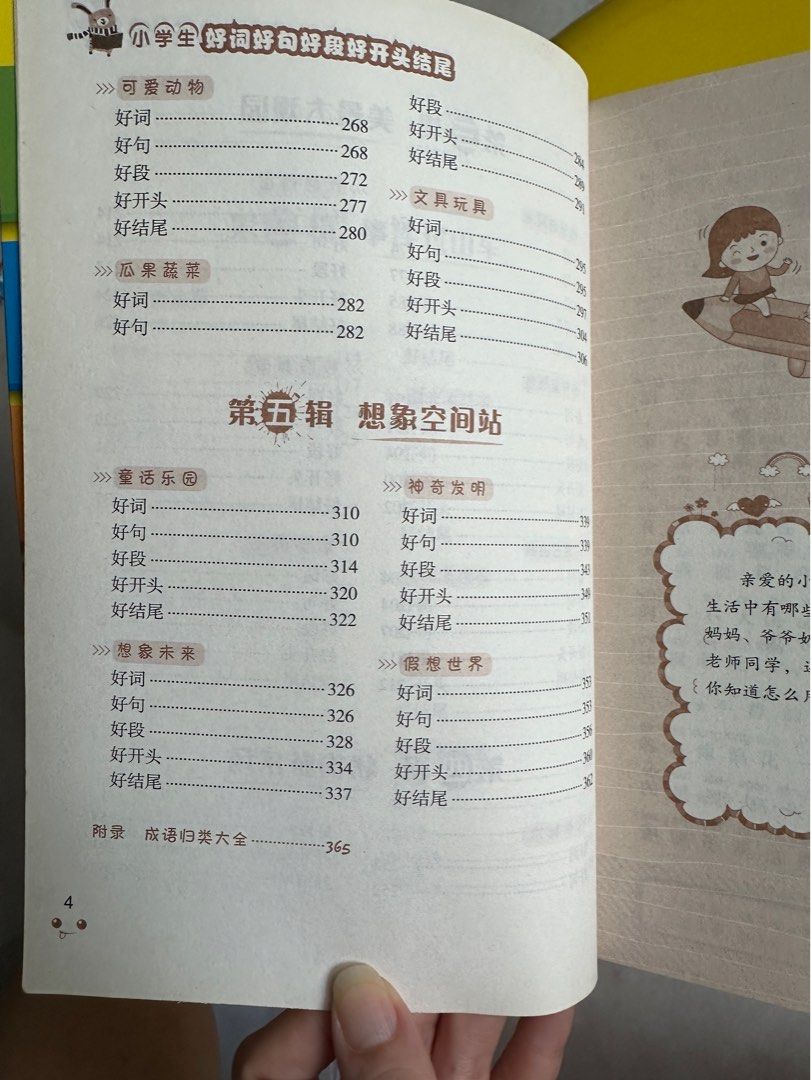 小学生好词好句好段好开头结尾
>>> 可爱动物
好词 268
好句 268
好段 272
好开头 277
好结尾 280
>>> 瓜果蔬菜
好词 282
好句 282
好段 284
好开头 289
好结尾 291
>>> 文具玩具
好词 295
好句 295
好段 297
好开头 304
好结尾 306
第五辑 想象空间站
>>> 童话乐园
好词 310
好句 310
好段 314
好开头 320
好结尾 322
>>> 想象未来
好词 326
好句 326
好段 328
好开头 334
好结尾 337
>>> 神奇发明
好词 339
好句 339
好段 343
好开头 349
好结尾 351
>>> 假想世界
好词 353
好句 353
好段 356
好开头 360
好结尾 362
附录 成语归类大全 365
4
亲爱的小
生活中有哪些
妈妈、爷爷奶
老师同学，
你知道怎么用